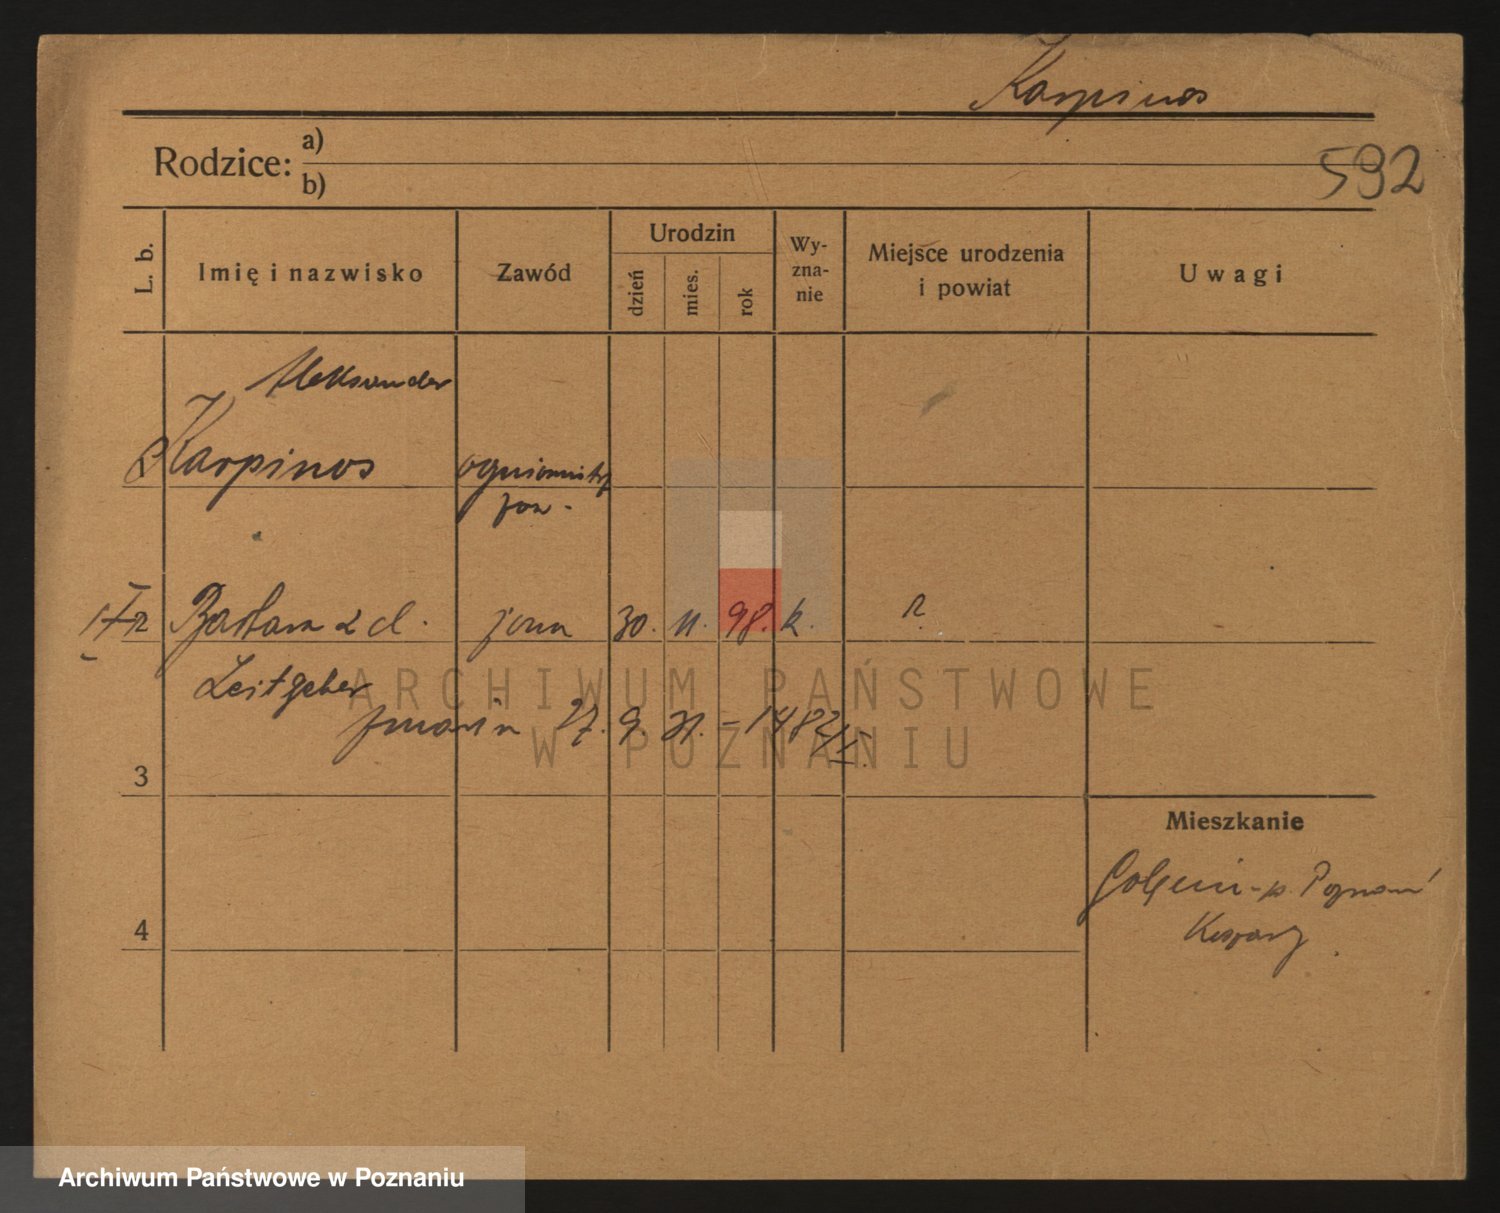 Karpinos
Rodzice:
a)
b)
592
L. b.
Imię i nazwisko
Zawód
Urodzin
dzień
mies.
rok
Wy-
zna-
nie
Miejsce urodzenia
i powiat
Uwagi
Aleksander
Karpinos
ogniomistrz
zaw.
2 Barbara z d. żona 30. 11. 98. k.
Leitgeber
zmarła 27. 9. 31. - 1482/
3
Mieszkanie
Golęcin - p. Poznań
Koszary
4
ARCHIWUM PAŃSTWOWE
W POZNANIU
Archiwum Państwowe w Poznaniu